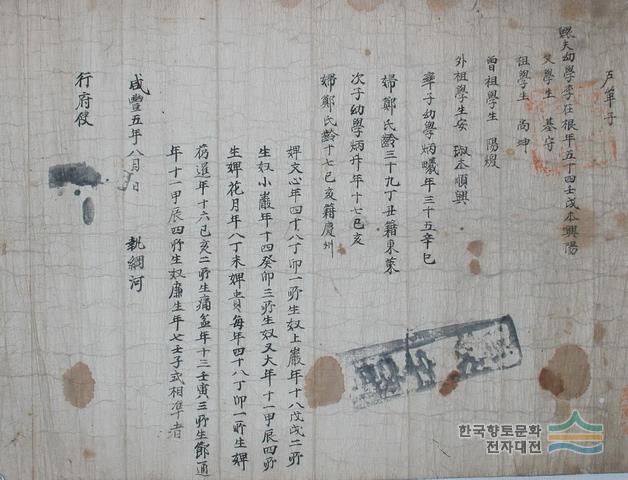 戶單子
鰥夫幼學李在根年五十四壬戌本興陽
父學生 基守
祖學生 尚坤
曾祖學生 陽煥
外祖學生安 淑本順興
率子幼學炳曦年三十五辛巳
婦鄭氏齡三十九丁丑籍東萊
次子幼學炳升年十七己亥
婦鄭氏齡十七己亥籍慶州
婢文心年四十八丁卯一所生奴上巖年十八戊戌二所
生奴小巖年十四癸卯三所生奴又大年十一甲辰四所
生婢花月年八丁未婢貴每年四十八丁卯一所生婢
葯暹年十六己亥二所生痛益年十三壬寅三所生節通
年十一甲辰四所生奴廉生年七壬子式相准者
咸豐五年八月 日 執綱河
行府使
한국향토문화
전자대전